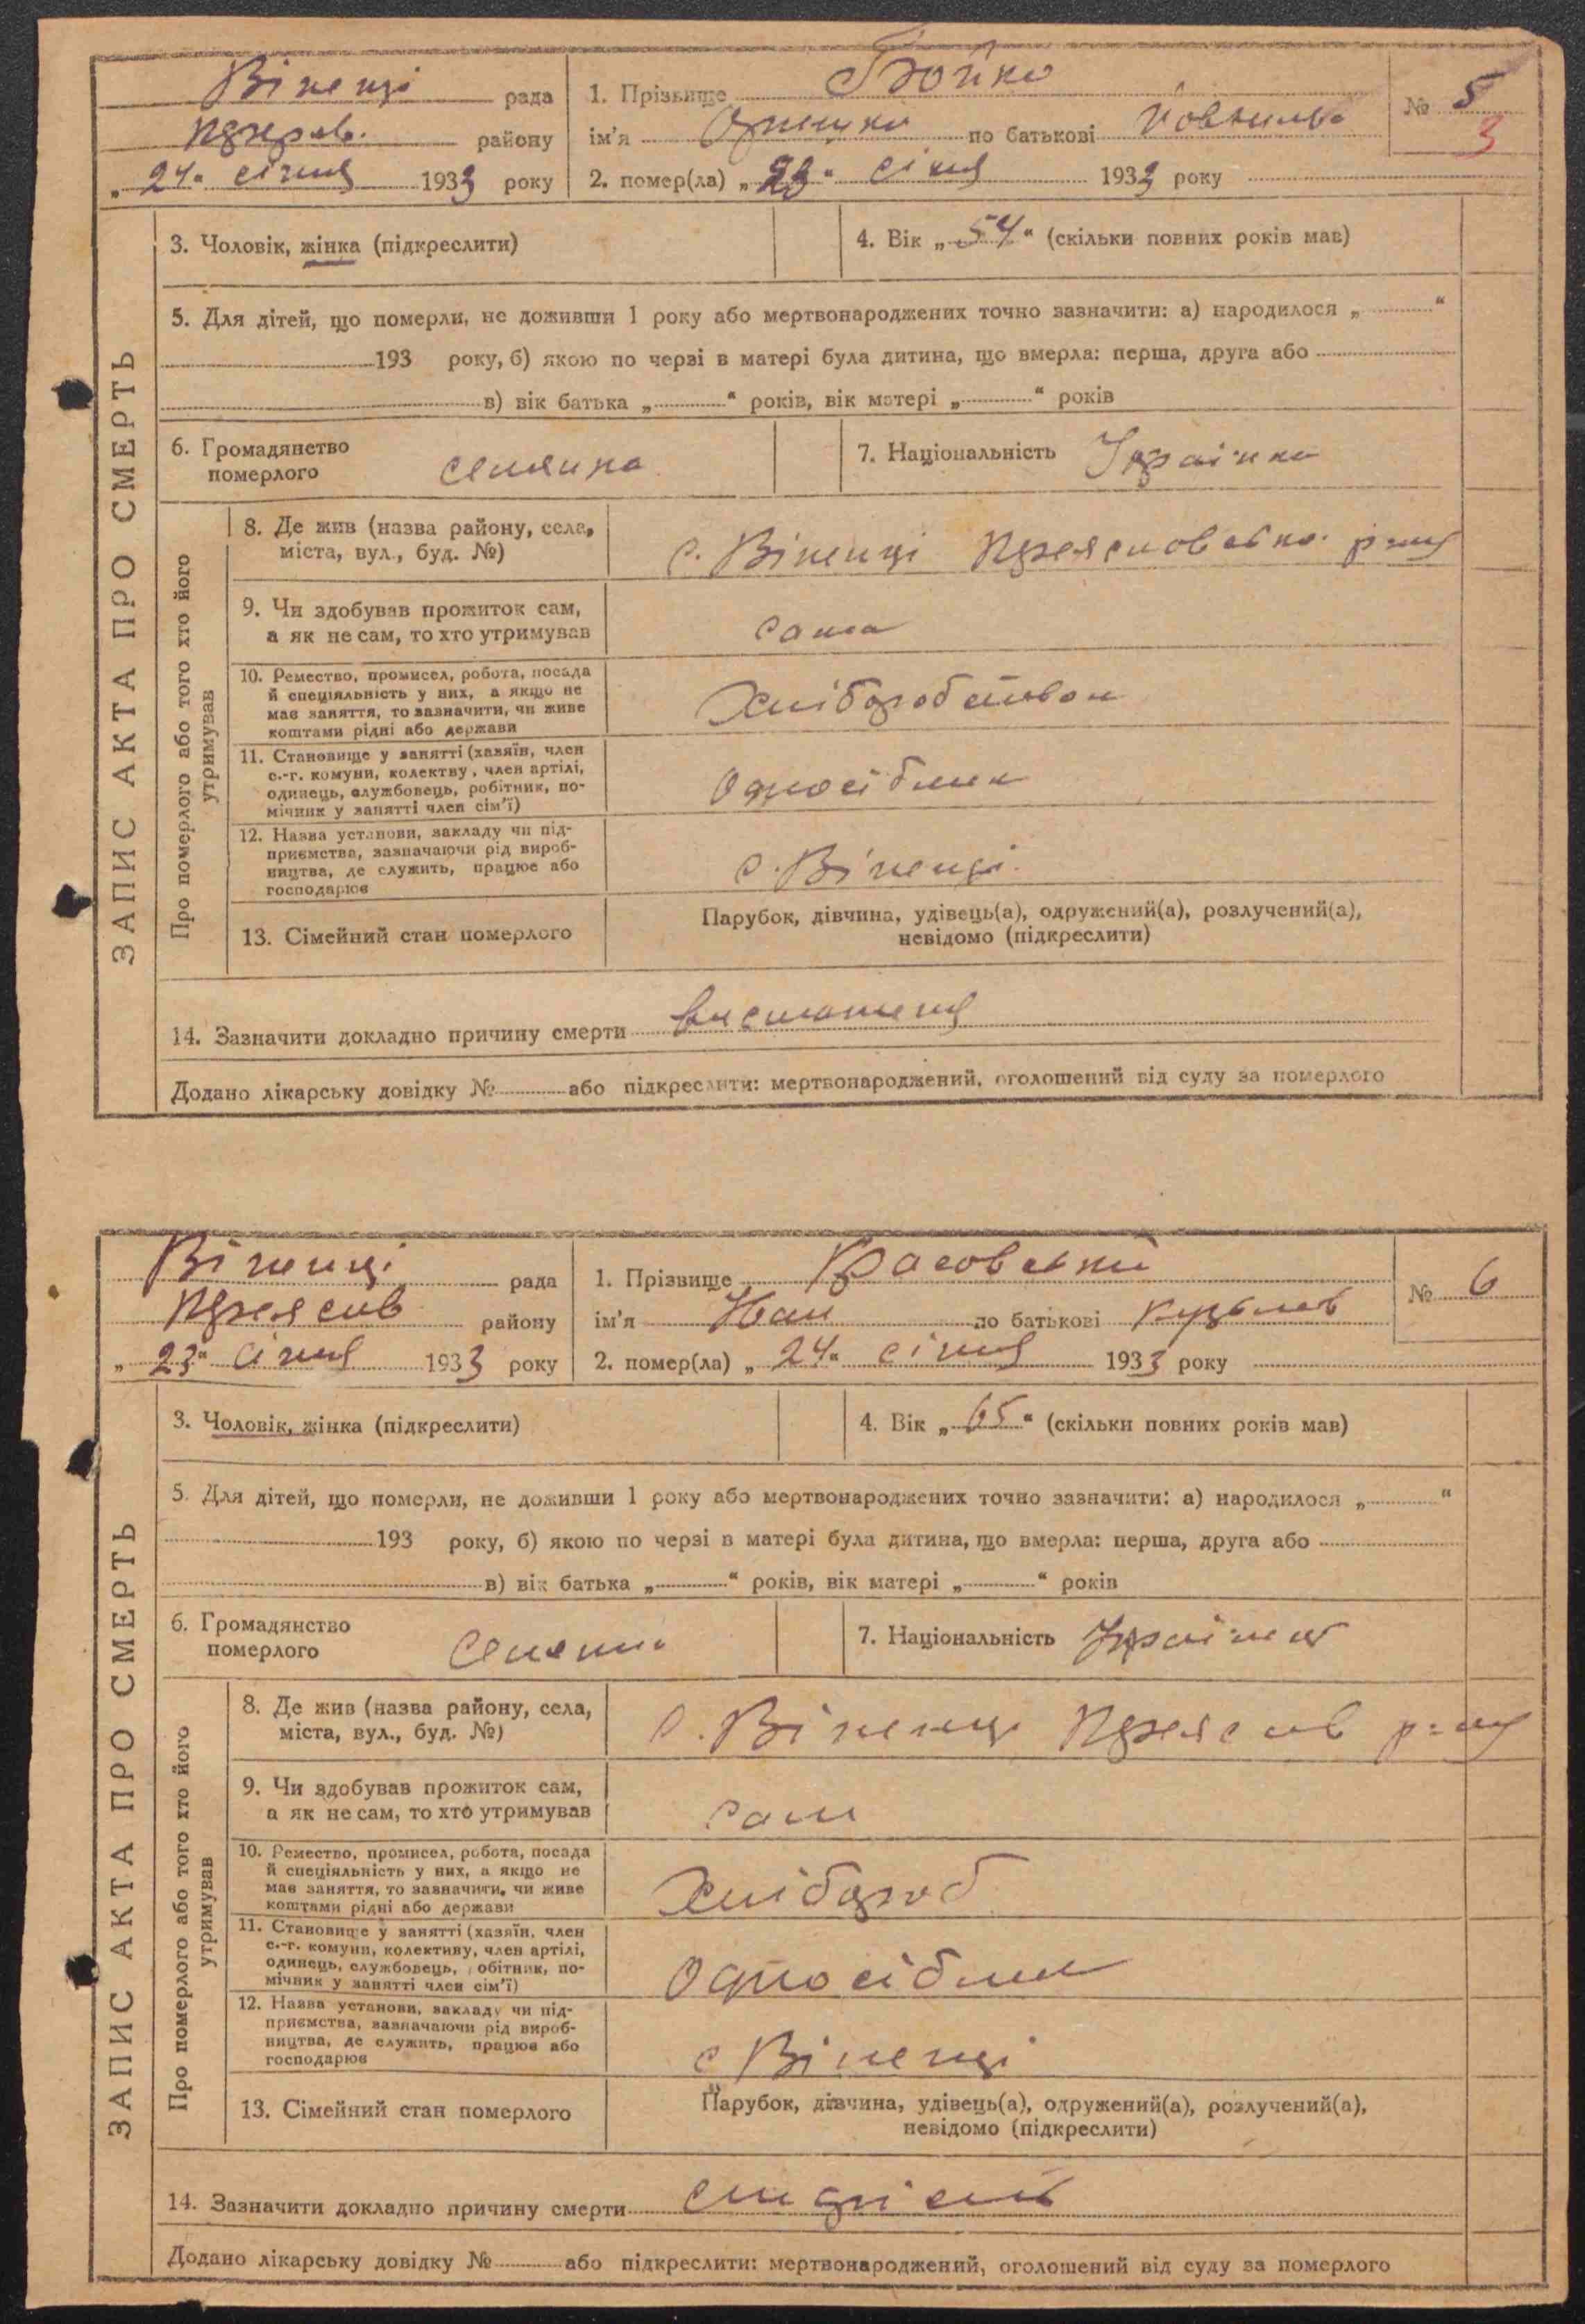 ЗАПИС АКТА ПРО СМЕРТЬ
Віненці рада
району
„24“ січня 1933 року
1. Прізвище Бойко
ім'я по батькові
2. помер(ла) „23“ січня 1933 року
№ 5
3
3. Чоловік, жінка (підкреслити)
4. Вік „54“ (скільки повних років мав)
5. Для дітей, що померли, не доживши 1 року або мертвонароджених точно зазначити: а) народилося „ “
193 року, б) якою по черзі в матері була дитина, що вмерла: перша, друга або
в) вік батька „ “ років, вік матері „ “ років
6. Громадянство
померлого селянка
7. Національність Українка
Про померлого або того хто його
утримував
8. Де жив (назва району, села,
міста, вул., буд. №)
с. Віненці р-ну
9. Чи здобував прожиток сам,
а як не сам, то хто утримував
сама
10. Ремество, промисел, робота, посада
й спеціяльність у них, а якщо не
має заняття, то зазначити, чи живе
коштами рідні або держави
Хліборобством
11. Становище у занятті (хазяїн, член
с.-г. комуни, колектву, член артілі,
одинець, службовець, робітник, по-
мічник у занятті член сім'ї)
Одноосібник
12. Назва установи, закладу чи під-
приємства, зазначаючи рід вироб-
ництва, де служить, працює або
господарює
с. Віненці
13. Сімейний стан померлого
Парубок, дівчина, удівець(а), одружений(а), розлучений(а),
невідомо (підкреслити)
14. Зазначити докладно причину смерти виснаження
Додано лікарську довідку № або підкреслити: мертвонароджений, оголошений від суду за померлого
ЗАПИС АКТА ПРО СМЕРТЬ
Віненці рада
Переяслів району
„23“ січня 1933 року
1. Прізвище Красовський
ім'я Іван по батькові Кузьмов
2. помер(ла) „24“ січня 1933 року
№ 6
3. Чоловік, жінка (підкреслити)
4. Вік „65“ (скільки повних років мав)
5. Для дітей, що померли, не доживши 1 року або мертвонароджених точно зазначити: а) народилося „ “
193 року, б) якою по черзі в матері була дитина, що вмерла: перша, друга або
в) вік батька „ “ років, вік матері „ “ років
6. Громадянство
померлого
7. Національність Українець
Про померлого або того хто його
утримував
8. Де жив (назва району, села,
міста, вул., буд. №)
с. Віненці Переяслів р-ну
9. Чи здобував прожиток сам,
а як не сам, то хто утримував
сам
10. Ремество, промисел, робота, посада
й спеціяльність у них, а якщо не
має заняття, то зазначити, чи живе
коштами рідні або держави
Хлібороб
11. Становище у занятті (хазяїн, член
с.-г. комуни, колективу, член артілі,
одинець, службовець, робітник, по-
мічник у занятті член сім'ї)
Одноосібник
12. Назва установи, закладу чи під-
приємства, зазначаючи рід вироб-
ництва, де служить, працює або
господарює
с Віненці
13. Сімейний стан померлого
Парубок, дівчина, удівець(а), одружений(а), розлучений(а),
невідомо (підкреслити)
14. Зазначити докладно причину смерти
Додано лікарську довідку № або підкреслити: мертвонароджений, оголошений від суду за померлого